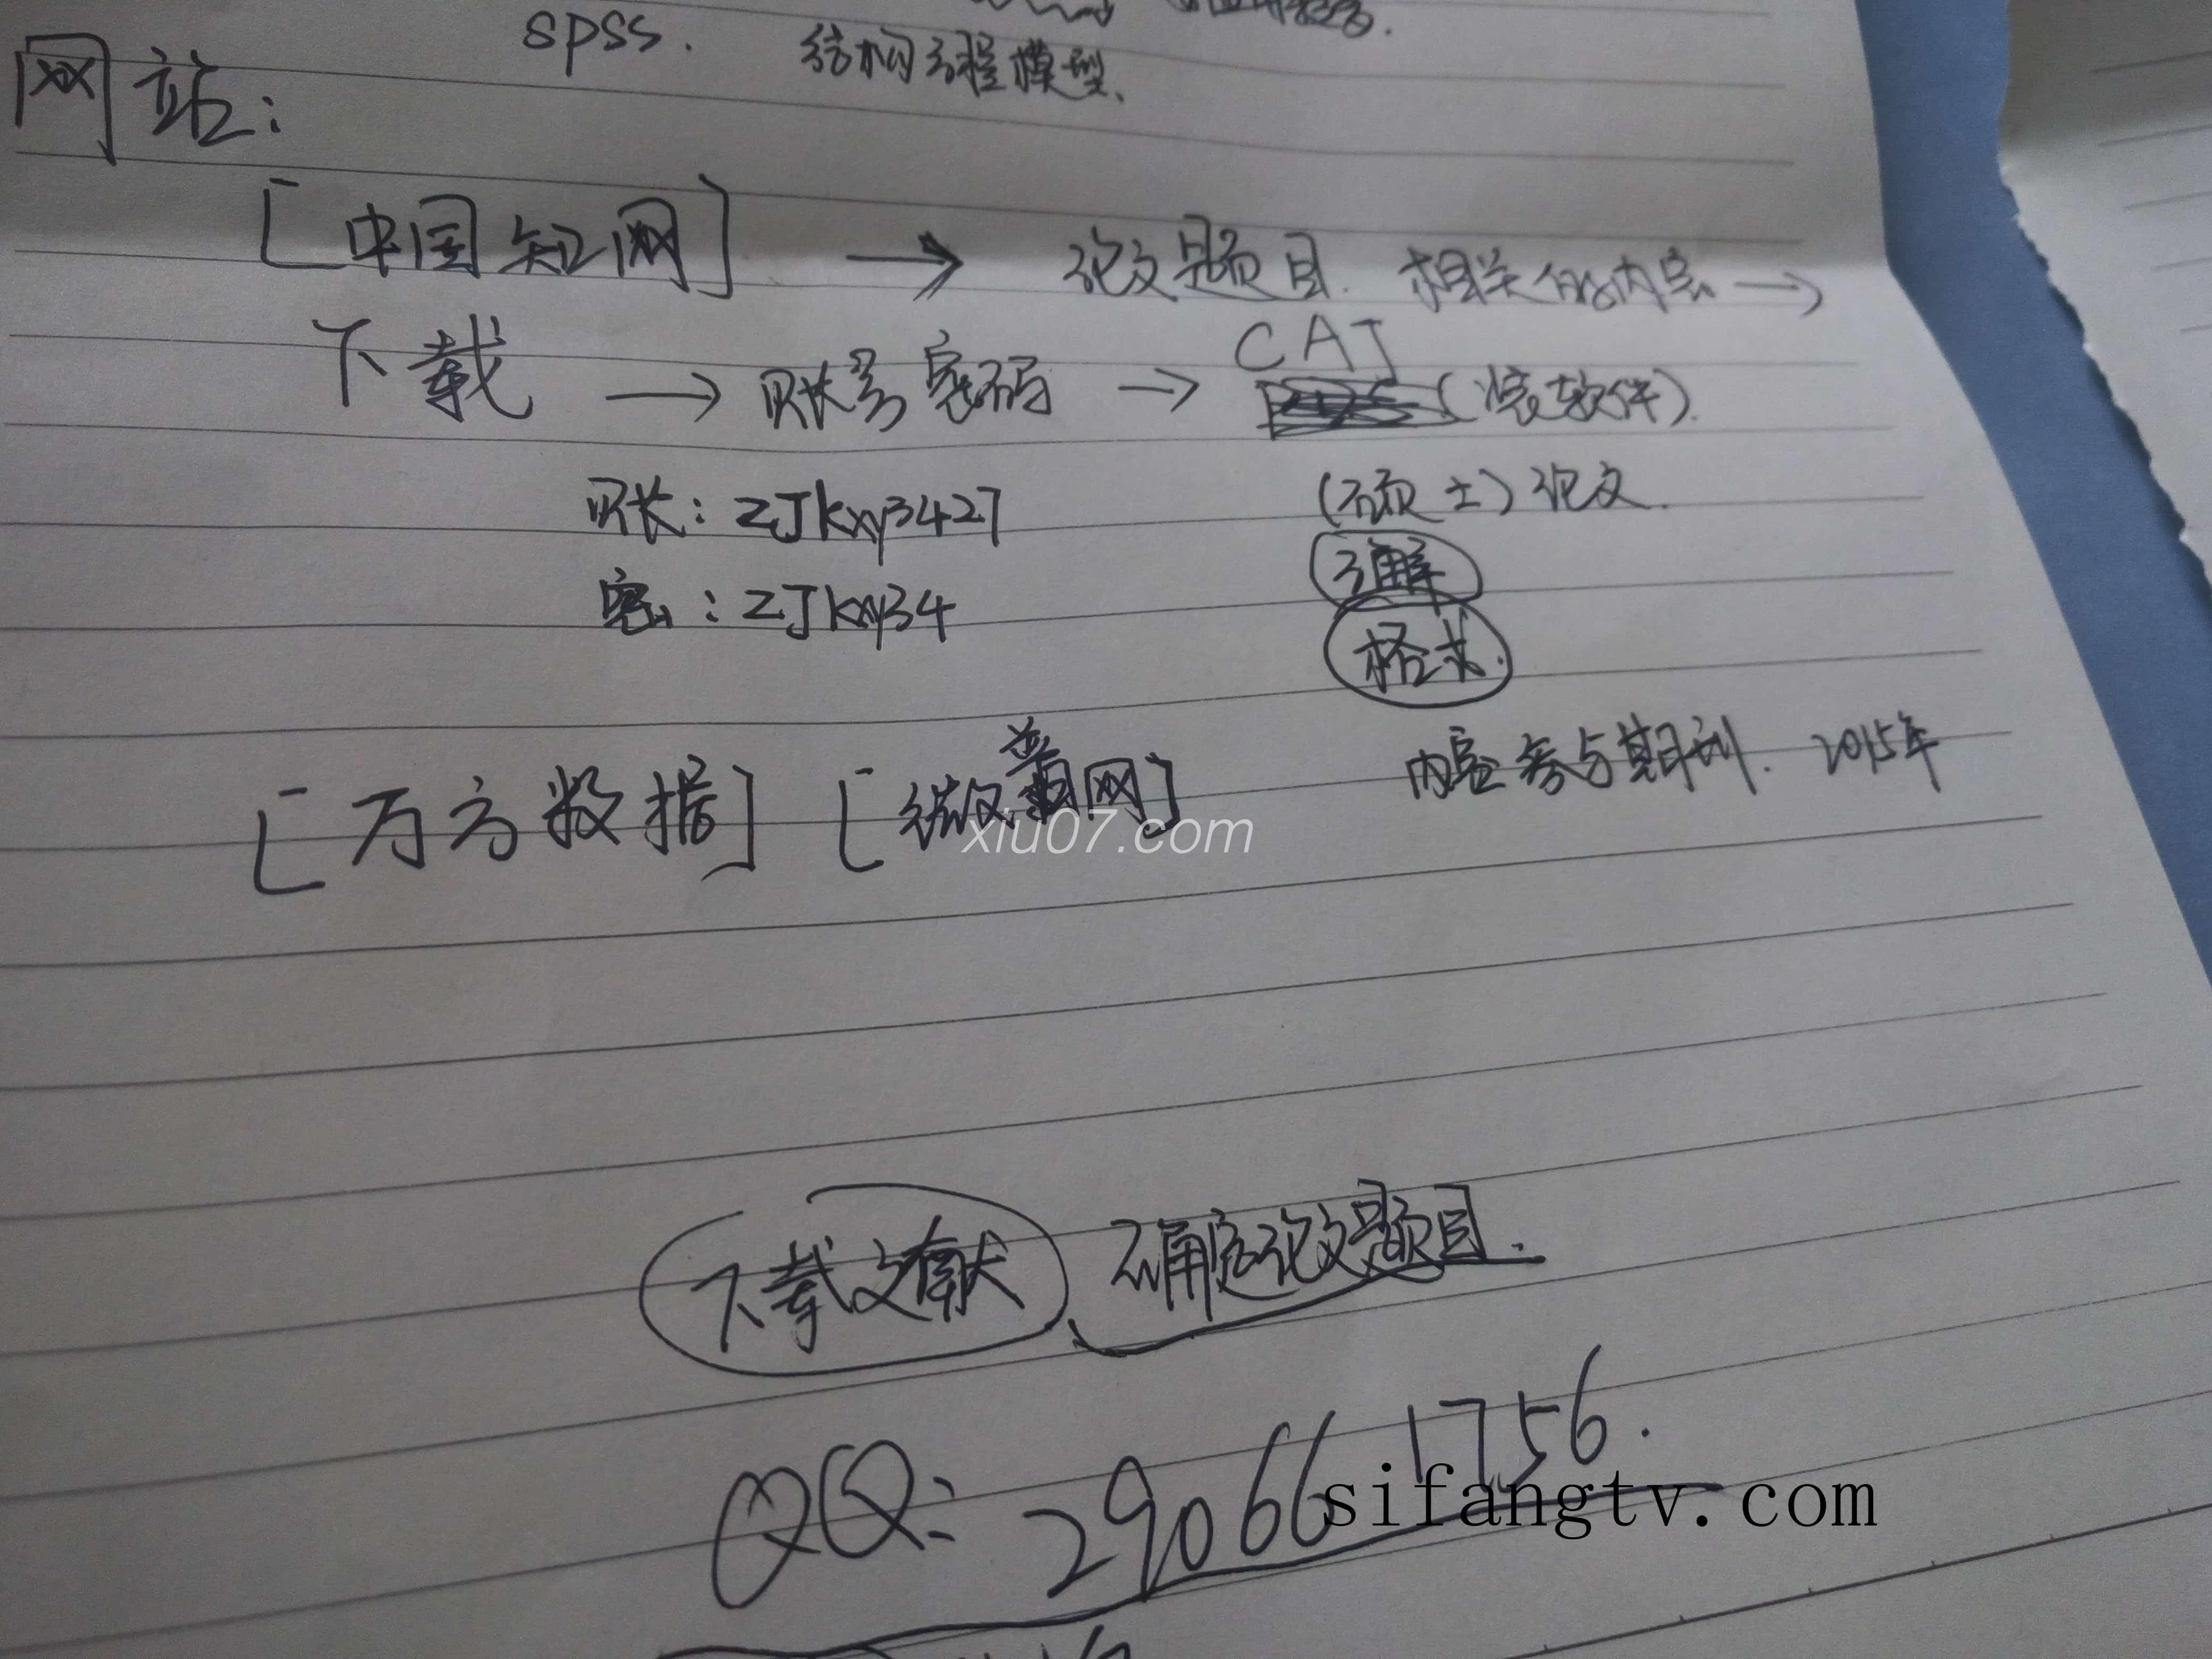 spss. 结构方程模型、
网站：
[中国知网] → 论文题目. 相关的内容 →
下载 → 账号密码 → CAJ (装软件).
账：ZJkxy3427
密：ZJkxy34
(硕士)论文.
理解
格式.
内容参与期刊. 2015年
[万方数据] [微普网]
xiu07.com
下载文献 确定论文题目.
QQ: 290661756.
sifangtv.com